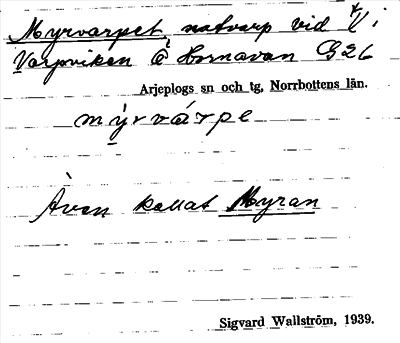 Myrvarpet, notvarp vid V i
Varpviken Ö Hornavan G26
Arjeplogs sn och tg, Norrbottens län.
mýrvárpe
Även kallat Myran
Sigvard Wallström, 1939.